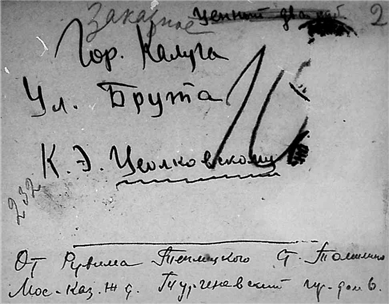 Заказное
Ценный 2
Гор. Калуга
Ул. Брута
К. Э. Циолковскому
232
От Рувима Теплицкого ст. Томилино
Мос-Каз. ж д. Тургеневский пр. дом 6.